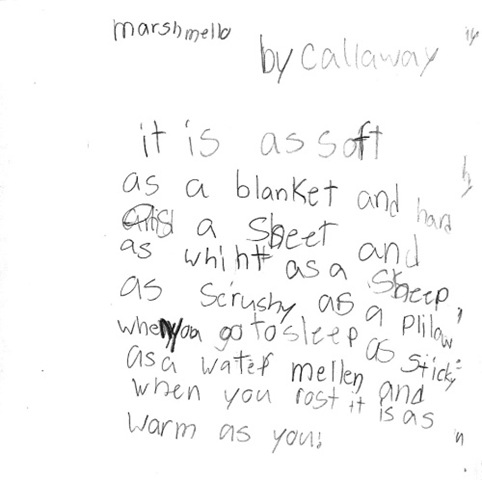 marshmello
by callaway
it is as soft
as a blanket and hard
a sheet and
as whiht as a sheep
as scrushy as a plilaw
when you go to sleep as sticky
as a water mellen and
when you rost it it is as
warm as you!